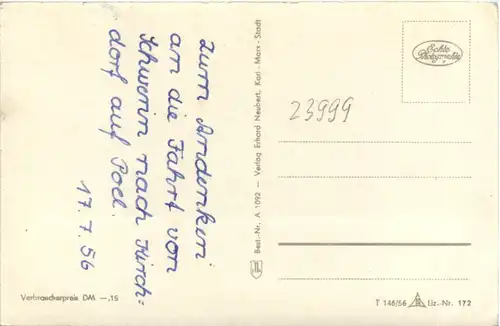 Zum Andenken
an die Fahrt von
Schwerin nach Kirch=
dorf auf Poel.
17.7.56
Verbraucherpreis DM —.15
Best.-Nr. A 1092 — Verlag Erhard Neubert, Karl-Marx-Stadt
Echte
Photographie
23999
T 146/56 Liz.-Nr. 172